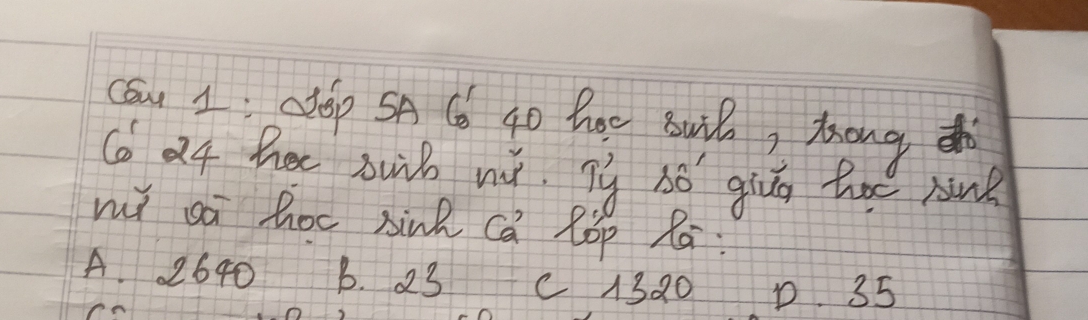 Câu 1: Lớp 5A Có 40 học sinh, trong đó
Có 24 học sinh nữ. Tỷ số giữa học sinh
nữ và học sinh cả lớp là:
A. 2640 B. 23 C 1320 D. 35